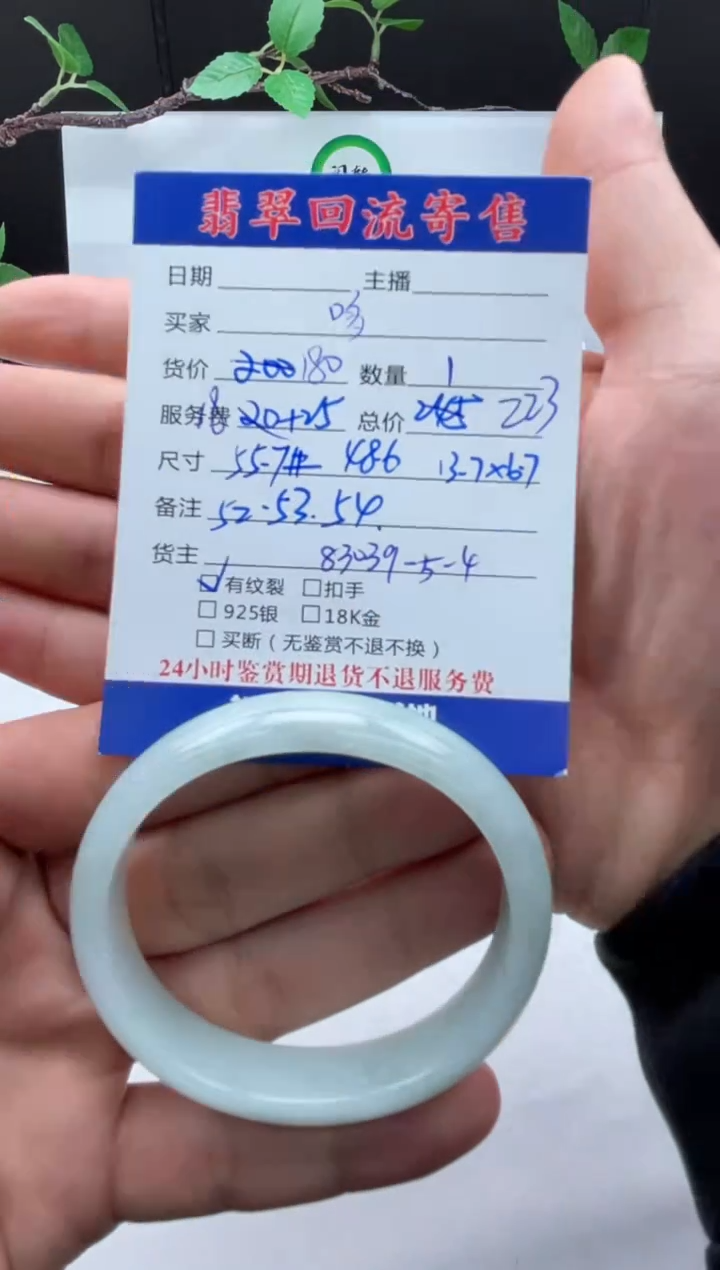 翡翠回流寄售
日期 主播
买家
货价 200 180 数量 1
服务费 18 20+25 总价 245 223
尺寸 55-7# 486 13.7×6.7
备注 52.53.54.
货主 83039-5-4
☑有纹裂 □扣手
□925银 □18K金
□买断(无鉴赏不退不换)
24小时鉴赏期退货不退服务费